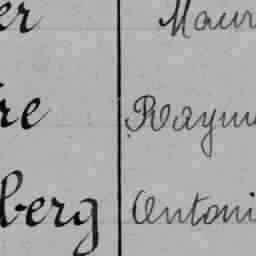 er Maur
re Raymo
berg Antoni